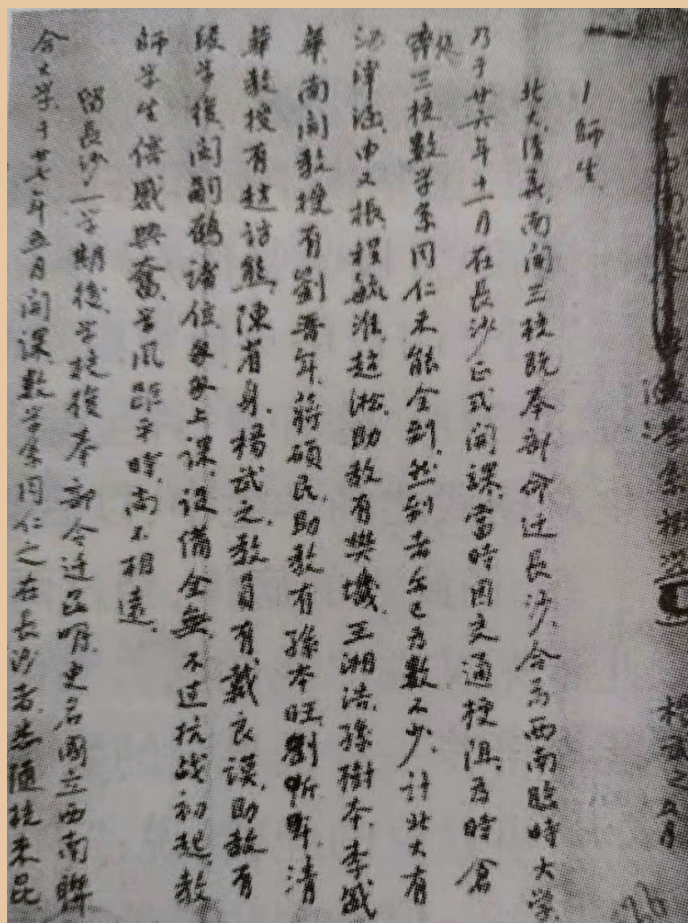 國立西南聯合大學算學系概況 楊武之 五月
1 師生
北大清華南開三校既奉部命迁長沙,合为西南臨時大学,
乃于廿六年十一月在長沙正式開課,當時因交通梗阻,为時倉
促,三校数学系同仁未能全到,然到者亦已为數不少,計北大有
江澤涵,申又振,程毓淮,趙淞,助教有樊𡎺,王湘浩,孫樹本,李盛
華,南開教授有劉晋年,蔣碩民,助教有孫本旺,劉昕年,清
華教授有趙訪熊,陳省身,楊武之,教員有戴良謨,助教有
段学復,閔嗣鶴諸位,每每上課,設備全無,不过抗战初起,教
師学生倍感興奮,学風距平時,尚不相遠.
留長沙一学期後,学校復奉部令迁昆明,更名國立西南聯
合大学,于廿七年五月開課,数学系同仁之在長沙者,悉随校来昆
76